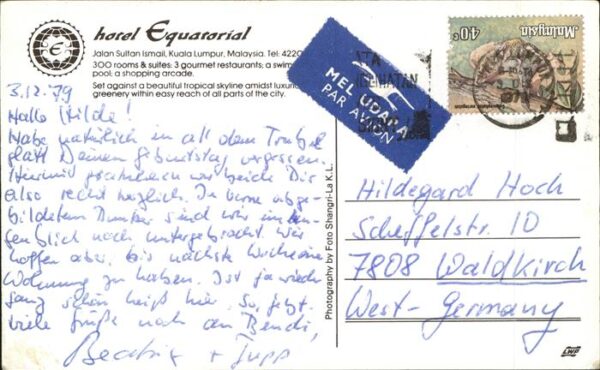 hotel Equatorial
Jalan Sultan Ismail, Kuala Lumpur, Malaysia. Tel: 4220
300 rooms & suites: 3 gourmet restaurants; a swim
pool: a shopping arcade.
Set against a beautiful tropical skyline amidst luxur
greenery within easy reach of all parts of the city.
3.12.79
Hallo Hilde!
Habe natürlich in all dem Trubel
glatt Deinen Geburtstag vergessen.
Hiermit gratulieren wir beide Dir
also recht herzlich. In vorne abge-
bildetem Bunker sind wir im Au-
genblick noch untergebracht. Wir
hoffen aber, bis nächste Woche eine
Wohnung zu haben. Ist ja wieder
ganz schön heiß hier. So, jetzt
viele Grüße noch an Bendi,
Beatrix + Jupp
Photography by Foto Shangri-La K.L.
MEL UDARA
PAR AVION
Malaysia
40c
Hildegard Hoch
Scheffelstr. 10
7808 Waldkirch
West-Germany
LWP